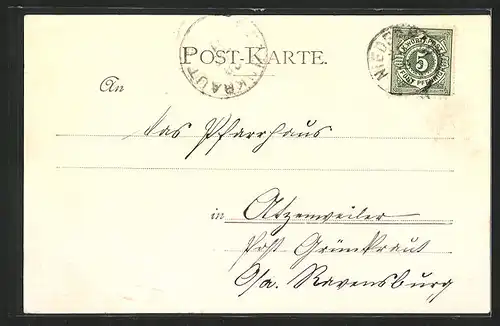 POST-KARTE.
KRAUT
NIED
5
FÜNF PFENNIG
An
das Pfarrhaus
in Atzenweiler
Post Grünkraut
O/a. Ravensburg